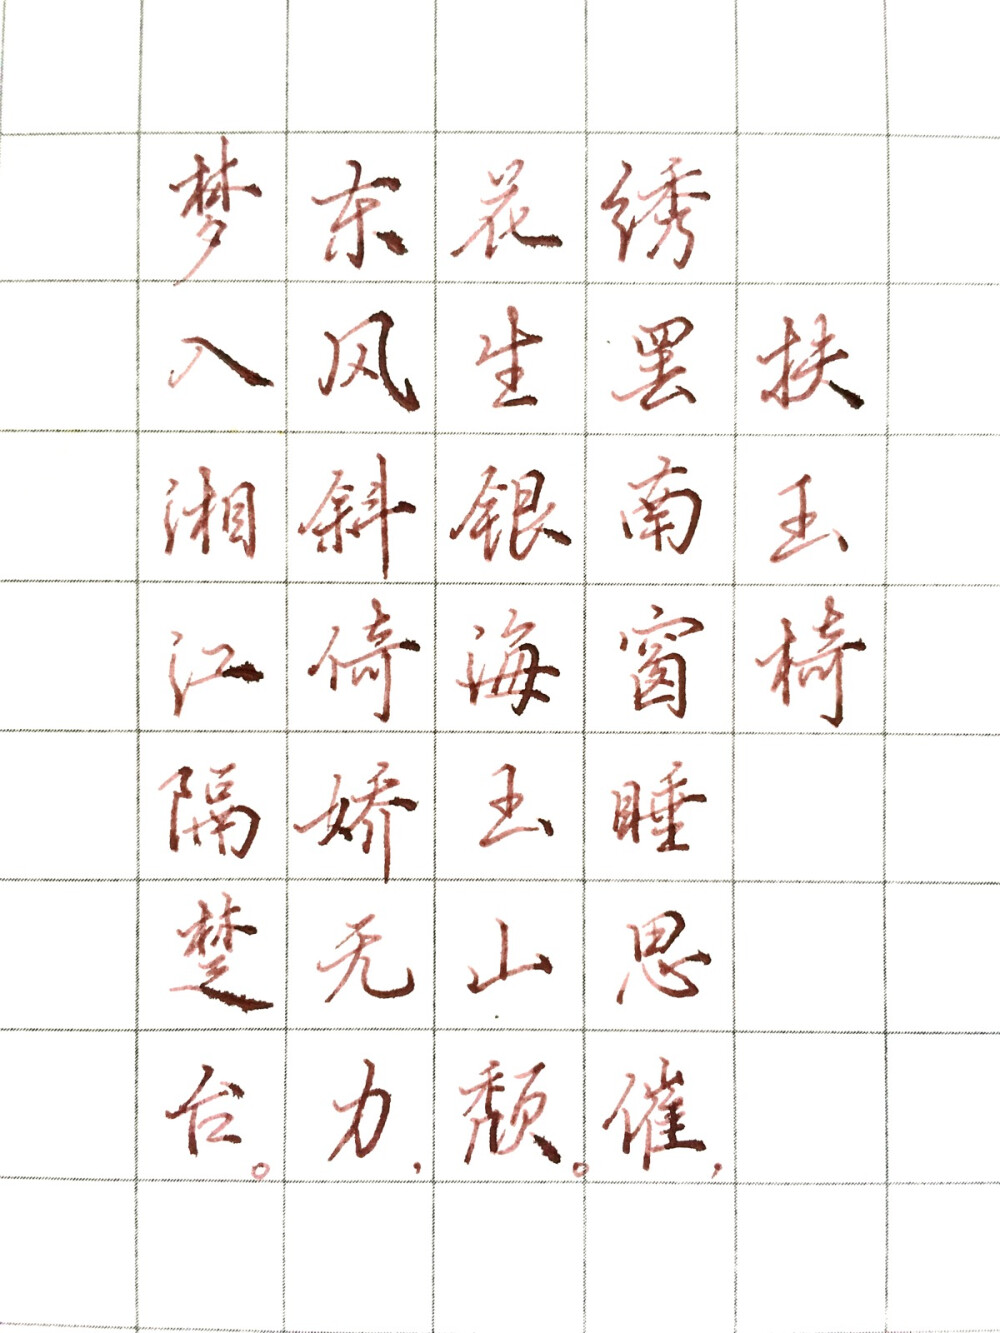 扶玉椅
绣罢南窗睡思催，
花生银海玉山颓。
东风斜倚娇无力，
梦入湘江隔楚台。